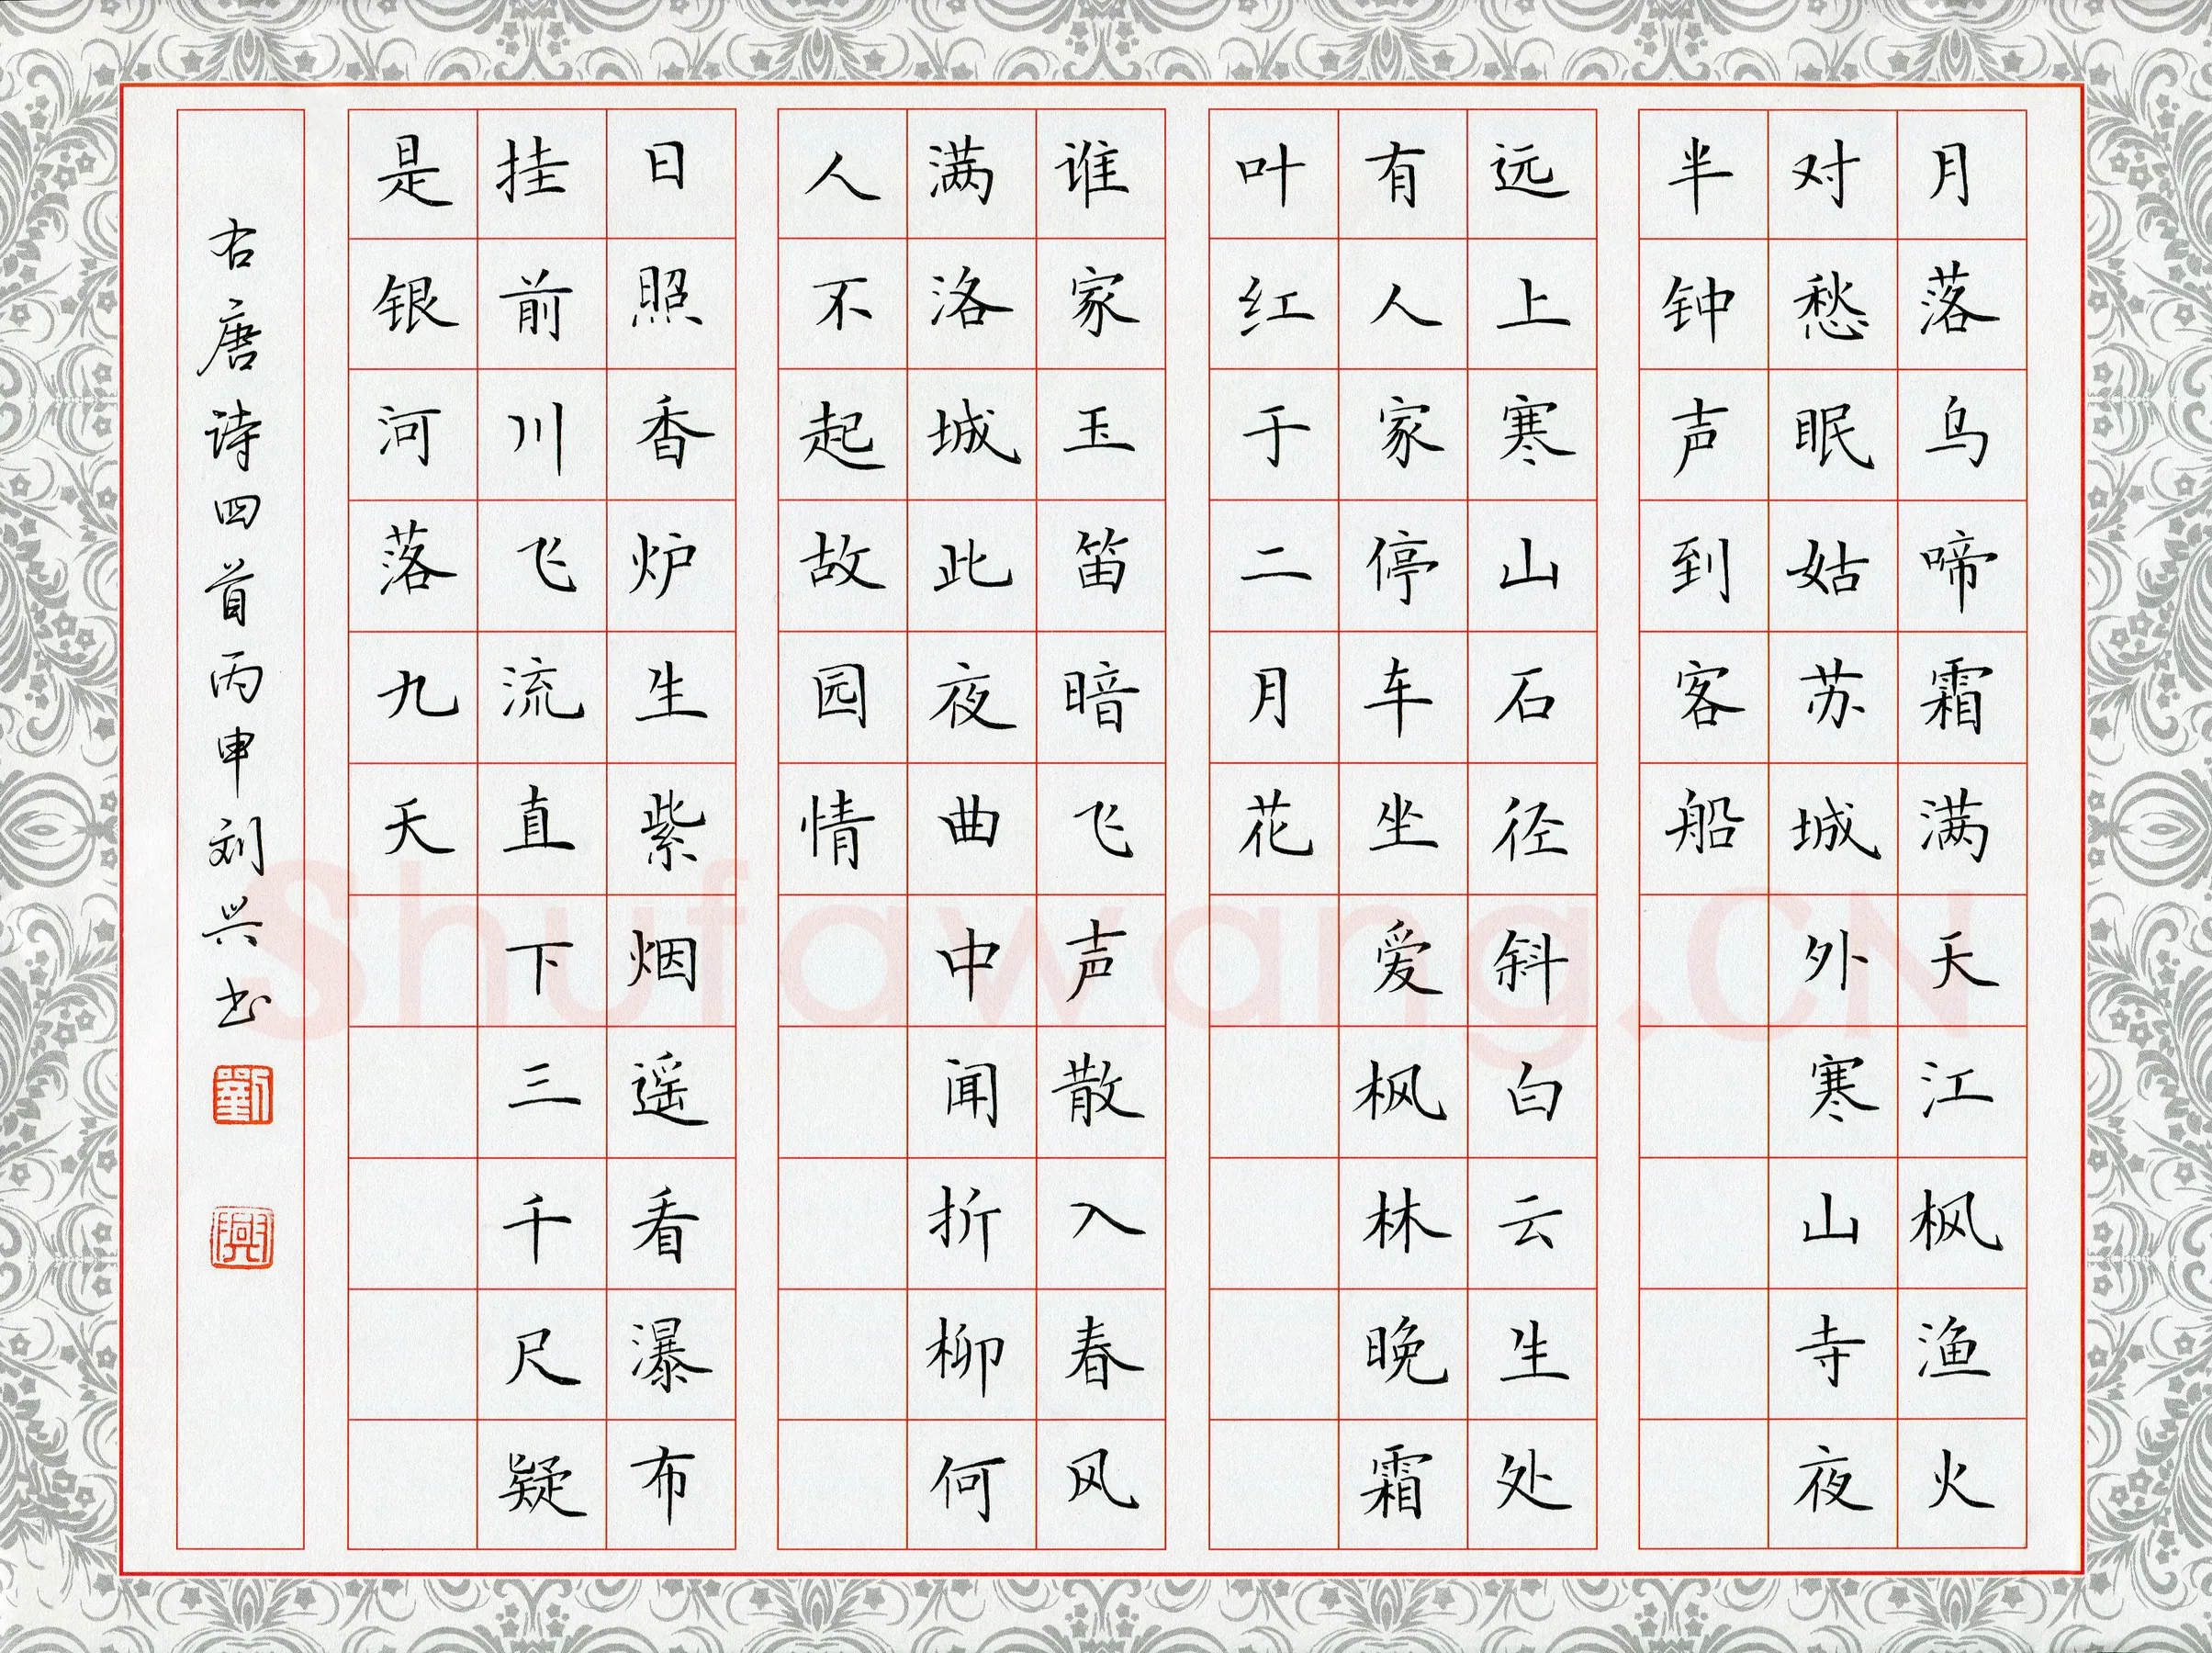 月落乌啼霜满天江枫渔火
对愁眠姑苏城外寒山寺夜
半钟声到客船
远上寒山石径斜白云生处
有人家停车坐爱枫林晚霜
叶红于二月花
谁家玉笛暗飞声散入春风
满洛城此夜曲中闻折柳何
人不起故园情
日照香炉生紫烟遥看瀑布
挂前川飞流直下三千尺疑
是银河落九天
右唐诗四首丙申刘兴书
劉
興
Shufawang.CN